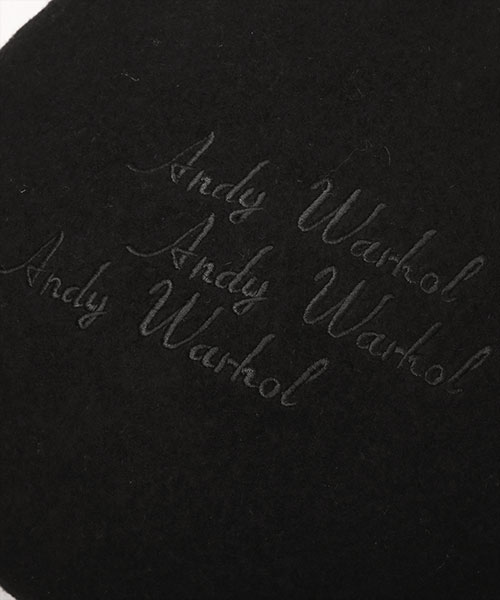 Andy Warhol
Andy Warhol
Andy Warhol